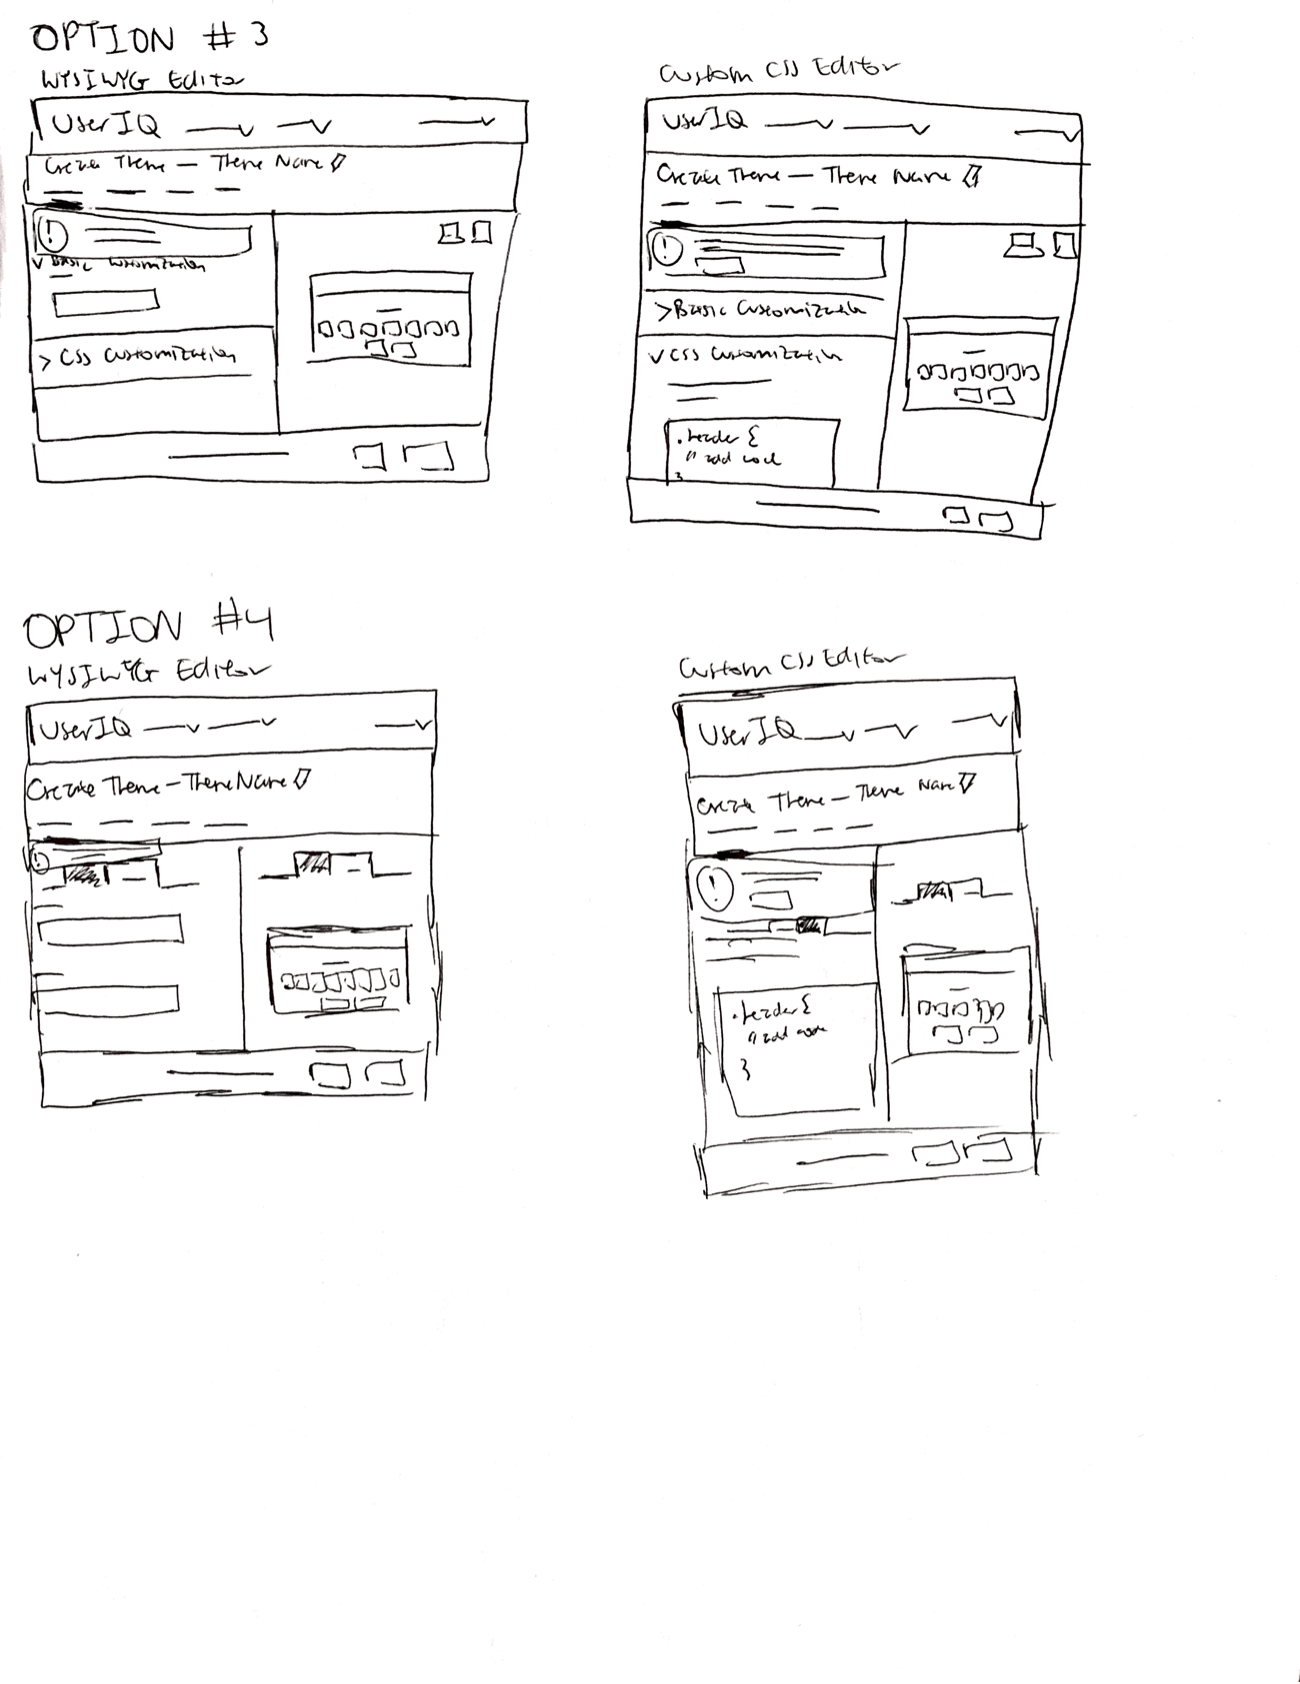 OPTION #3
WYSIWYG Editor
UserIQ
Create Theme — Theme Name
Basic Customization
> CSS Customization
Custom CSS Editor
UserIQ
Create Theme — Theme Name
> Basic Customization
v CSS Customization
.header {
// add code
}
OPTION #4
WYSIWYG Editor
UserIQ
Create Theme — Theme Name
Custom CSS Editor
UserIQ
Create Theme — Theme Name
.header {
// add code
}